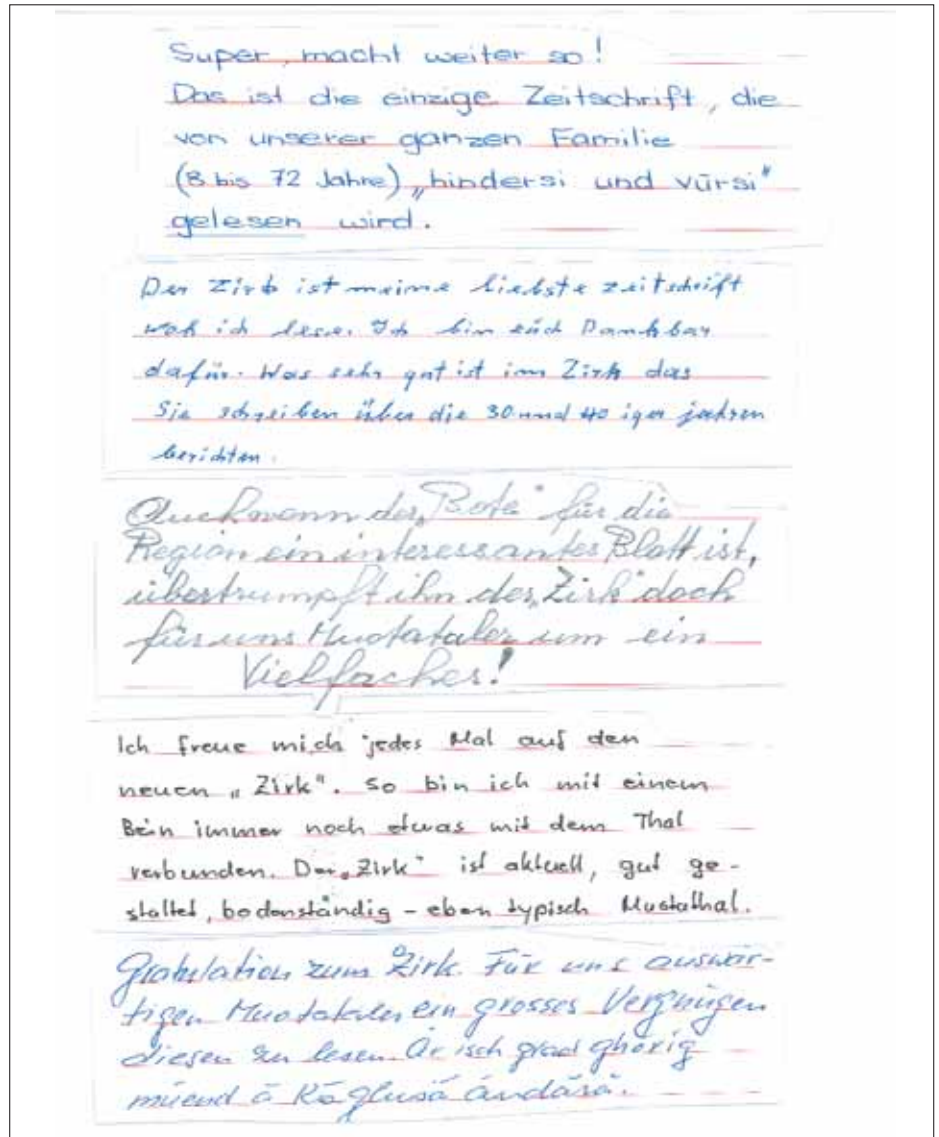 Super, macht weiter so!
Das ist die einzige Zeitschrift, die
von unserer ganzen Familie
(8 bis 72 Jahre) „hindersi und vürsi"
gelesen wird.
Der Zirk ist meine liebste zeitschrift
woh ich lese. Ich bin eüch Dankbar
dafür. Was sehr gut ist im Zirk das
Sie schreiben über die 30 und 40 iger jahren
berichten.
Auch wenn der „Bote" für die
Region ein interessantes Blatt ist,
übertrumpft ihn der „Zirk" doch
für uns Muotataler um ein
Vielfaches!
Ich freue mich jedes Mal auf den
neuen „Zirk". So bin ich mit einem
Bein immer noch etwas mit dem Thal
verbunden. Der „Zirk" ist aktuell, gut ge-
staltet, bodenständig - eben typisch Muotathal.
Gratulation zum Zirk. Für uns auswär-
tigen Muotataler ein grosses Vergnügen
diesen zu lesen. Är isch grad ghörig
müend ä